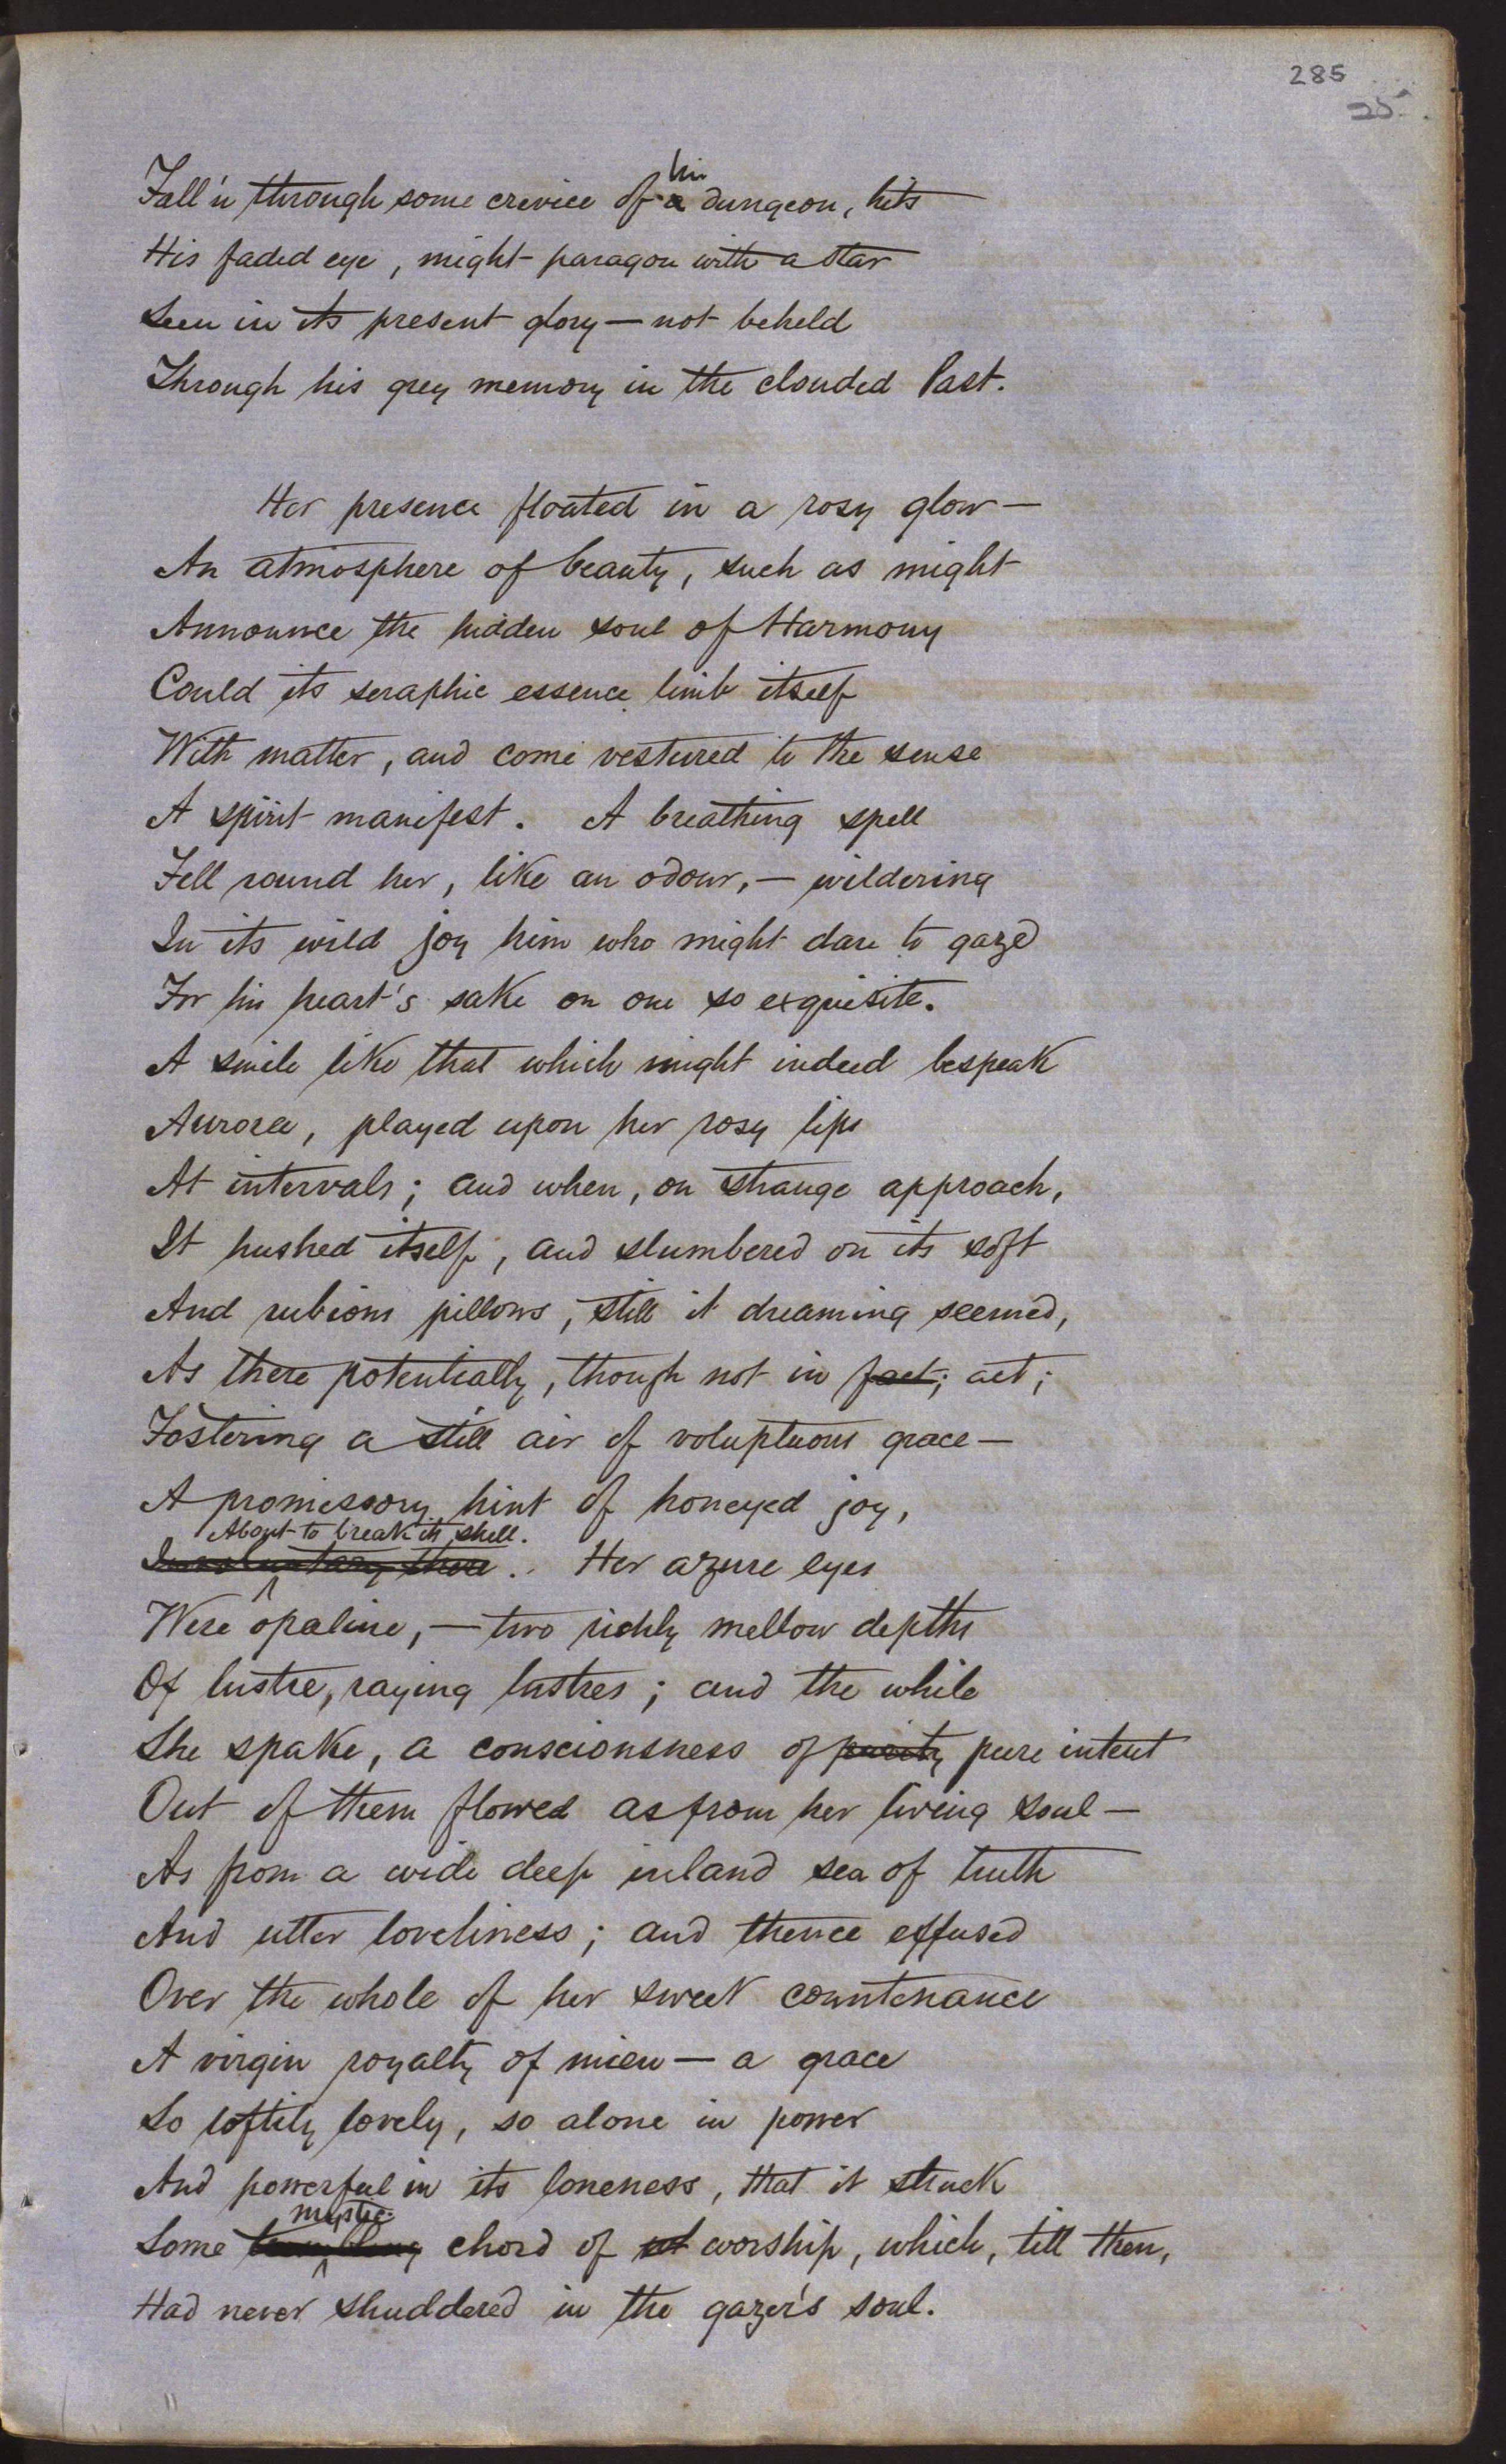 285
25
Fall'n through some crevice of his a dungeon, hits
His faded eye, might paragon with a star
Seen in its present glory — not beheld
Through his grey memory in the clouded Past.
Her presence floated in a rosy glow —
An atmosphere of beauty, such as might
Announce the hidden soul of Harmony
Could its seraphic essence limb itself
With matter, and come vestured to the sense
A spirit manifest. A breathing spell
Fell round her, like an odour, — wildering
In its wild joy him who might dare to gaze
For his heart's sake on one so exquisite.
A smile like that which might indeed bespeak
Aurora, played upon her rosy lips
At intervals; and when, on strange approach,
It hushed itself, and slumbered on its soft
And rubious pillows, still it dreaming seemed,
As there potentially, though not in fact; act;
Fostering a still air of voluptuous grace —
A promissory hint of honeyed joy,
About to break its shell.
Involuntary there. Her azure eyes
Were opaline, — two richly mellow depths
Of lustre, raying lustres; and the while
She spake, a consciousness of purity pure intent
Out of them flowed as from her living soul —
As from a wide deep inland sea of truth
And utter loveliness; and thence effused
Over the whole of her sweet countenance
A virgin royalty of mien — a grace
So loftily lovely, so alone in power
And powerful in its loneness, that it struck
mystic
Some trembling chord of worship, which, till then,
Had never shuddered in the gazer's soul.